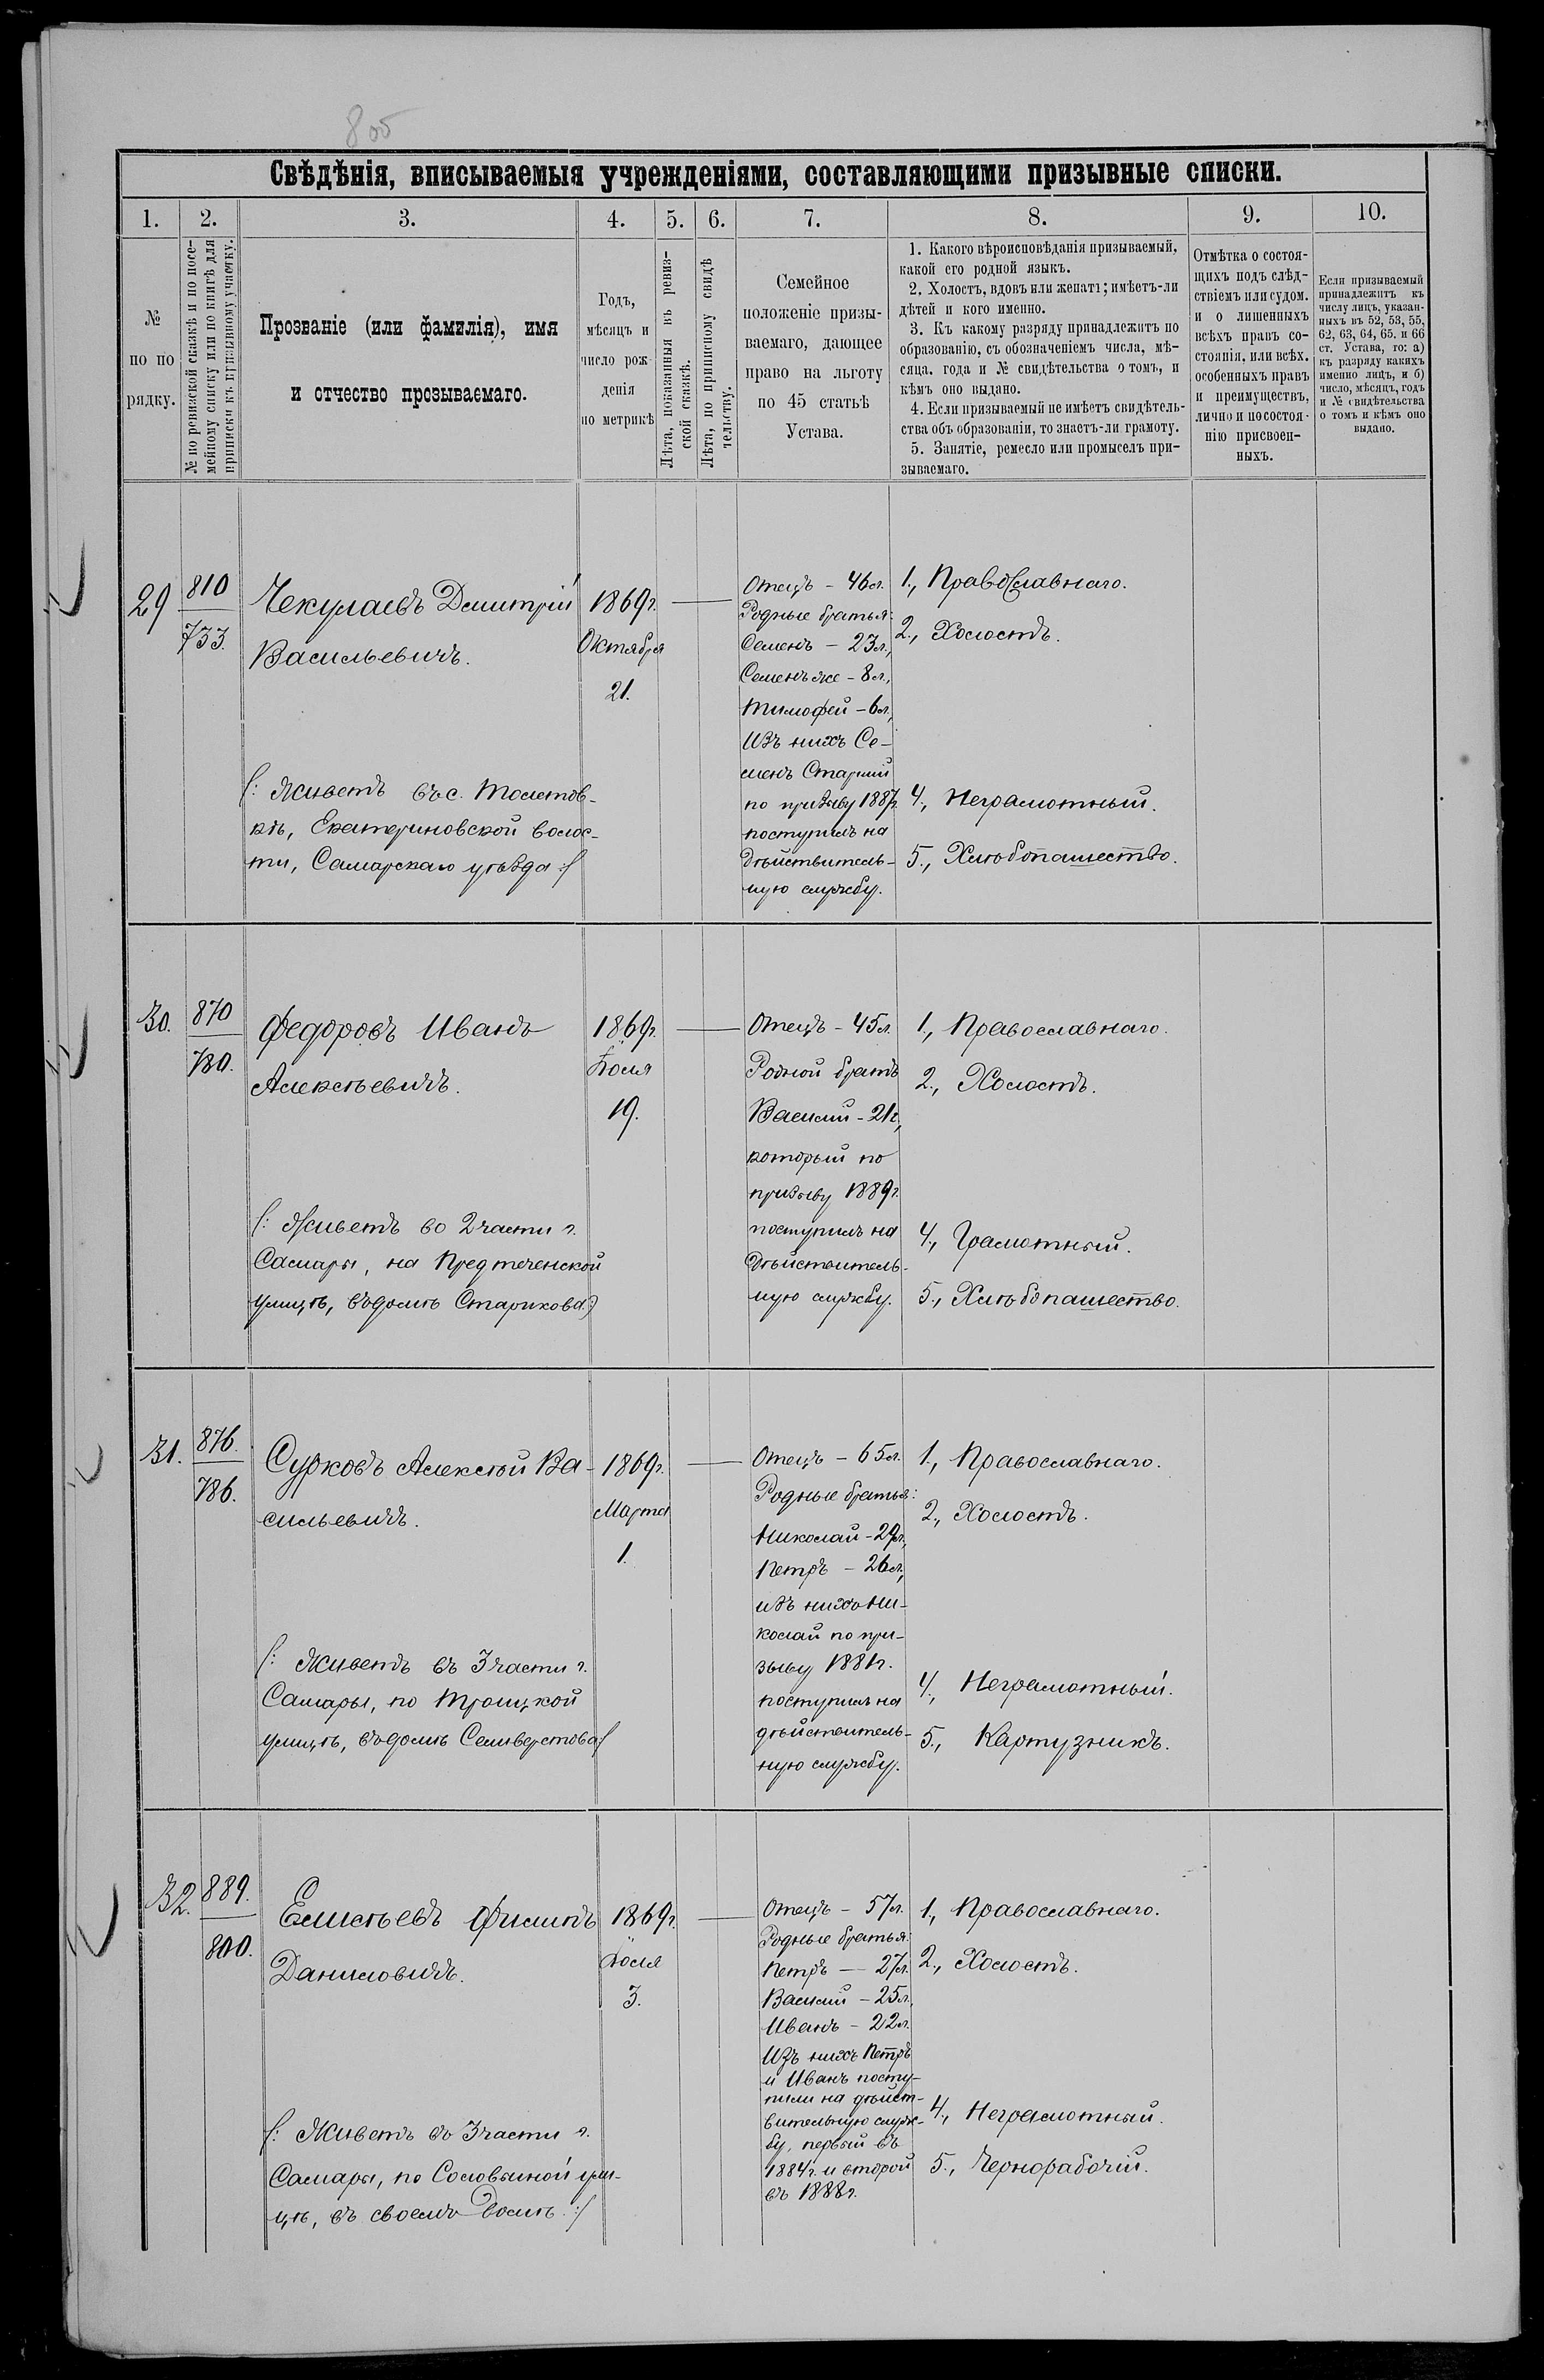 800
Свѣдѣнія, вписываемыя учрежденіями, составляющими призывные списки.
1. 2. 3. 4. 5. 6. 7. 8. 9. 10.
№
по по
рядку.
№ по ревизской сказкѣ и по посе-
мейному списку или по книгѣ для
приписки къ призывному участку.
Прозваніе (или фамилія), имя
и отчество прозываемаго.
Годъ,
мѣсяцъ и
число рож
денія
по метрикѣ
Лѣта, показанныя въ ревиз-
ской сказкѣ.
Лѣта, по приписному свидѣ
тельству.
Семейное
положеніе призы-
ваемаго, дающее
право на льготу
по 45 статьѣ
Устава.
1. Какого вѣроисповѣданія призываемый,
какой его родной языкъ.
2. Холостъ, вдовъ или женатъ; имѣетъ-ли
дѣтей и кого именно.
3. Къ какому разряду принадлежитъ по
образованію, съ обозначеніемъ числа, мѣ-
сяца, года и № свидѣтельства о томъ, и
кѣмъ оно выдано.
4. Если призываемый не имѣетъ свидѣтель-
ства объ образованіи, то знаетъ-ли грамоту.
5. Занятіе, ремесло или промыселъ при-
зываемаго.
Отмѣтка о состоя-
щихъ подъ слѣд-
ствіемъ или судом.
и о лишенныхъ
всѣхъ правъ со-
стоянія, или всѣх.
особенныхъ правъ
и преимуществъ,
лично и по состоя-
нію присвоен-
ныхъ.
Если призываемый
принадлежитъ къ
числу лицъ, указан-
ныхъ въ 52, 53, 55,
62, 63, 64, 65, и 66
ст. Устава, то: а)
къ разряду какихъ
именно лицъ, и б)
число, мѣсяцъ, годъ
и № свидѣтельства
о томъ и кѣмъ оно
выдано.
29
810
733.
Чекулаевъ Дмитрій
Васильевичъ.
(: Живетъ въ с. Толстов-
кѣ, Екатериновской волос-
ти, Самарскаго уѣзда :)
1869г.
Октября
21.
Отецъ – 46л.
Родные братья:
Семенъ – 23л.,
Семенъ же – 8л.,
Тимофей – 6л.,
Изъ нихъ Се-
менъ Старшій
по призыву 1887г.
поступилъ на
дѣйствитель-
ную службу.
1., Православнаго.
2., Холостъ.
4., Неграмотный.
5., Хлѣбопашество.
30.
870
780.
Федоровъ Иванъ
Алексѣевичъ.
(: Живетъ во 2 части г.
Самары, на Предтеченской
улицѣ, въ домѣ Старикова :)
1869г.
Іюля
19.
Отецъ – 45л.
Родной братъ
Василій – 21г.,
который по
призыву 1889г.
поступилъ на
дѣйствитель-
ную службу.
1., Православнаго.
2., Холостъ.
4., Грамотный.
5., Хлѣбопашество.
31.
876.
786.
Сурковъ Алексѣй Ва-
сильевичъ.
(: Живетъ въ 3 части г.
Самары, по Троицкой
улицѣ, въ домѣ Селиверстова :)
1869г.
Марта
1.
Отецъ – 65л.
Родные братья:
Николай – 29л.,
Петръ – 26л.,
изъ нихъ Ни-
колай по при-
зыву 1881г.
поступилъ на
дѣйствитель-
ную службу.
1., Православнаго.
2., Холостъ.
4., Неграмотный.
5., Картузникъ.
32.
889.
800.
Елисѣевъ Филипъ
Даниловичъ.
(: Живетъ въ 3 части г.
Самары, по Соловьиной ули-
цѣ, въ своемъ домѣ. :)
1869г.
Іюля
3.
Отецъ – 57л.
Родные братья:
Петръ – 27л.
Василій – 25л.
Иванъ – 22л.
Изъ нихъ Петръ
и Иванъ посту-
пили на дѣйст-
вительную служ-
бу, первый въ
1884г. и второй
въ 1888г.
1., Православнаго.
2., Холостъ.
4., Неграмотный.
5., Чернорабочій.